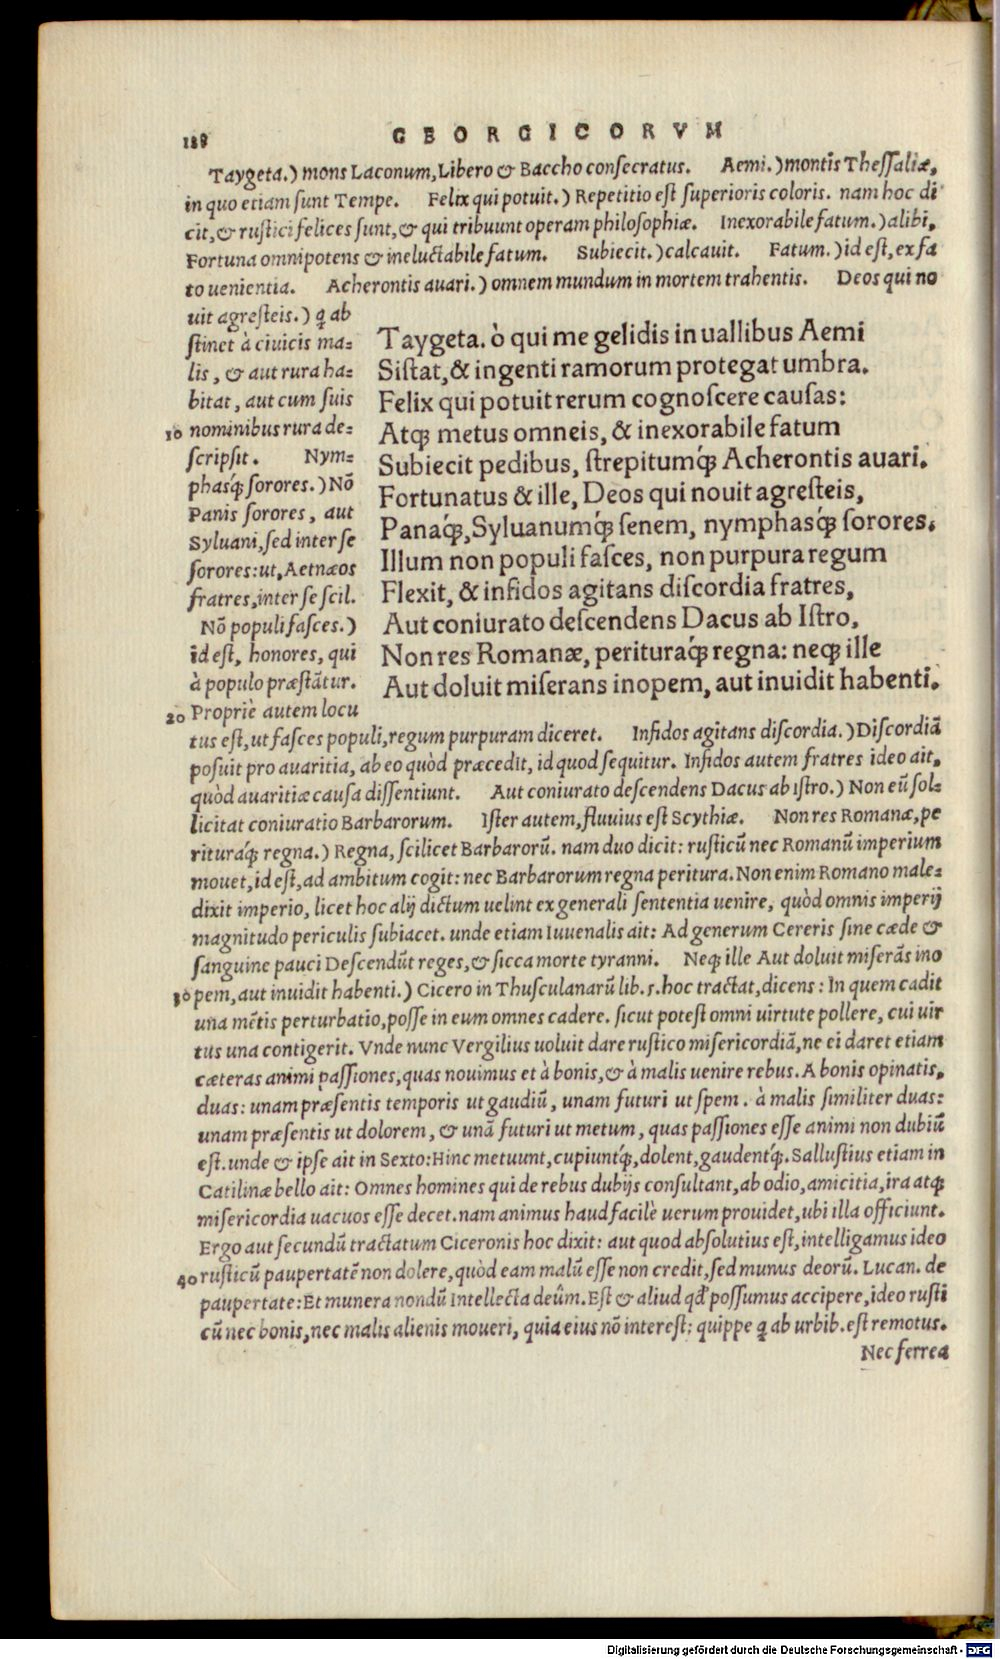 188 GEORGICORVM
Taygeta.) mons Laconum, Libero & Baccho consecratus. Aemi.) montis Thessaliæ,
in quo etiam sunt Tempe. Felix qui potuit.) Repetitio est superioris coloris. nam hoc di
cit, & rustici felices sunt, & qui tribuunt operam philosophiæ. Inexorabile fatum.) alibi,
Fortuna omnipotens & ineluctabile fatum. Subiecit.) calcauit. Fatum.) id est, ex fa
to uenientia. Acherontis auari.) omnem mundum in mortem trahentis. Deos qui no
uit agresteis.) ꝗ ab
stinet à ciuicis ma-
lis, & aut rura ha-
bitat, aut cum suis
10 nominibus rura de-
scripsit. Nym-
phasq́; sorores.) Nō
Panis sorores, aut
Syluani, sed inter se
sorores: ut, Aetnæos
fratres, inter se scil.
Nō populi fasces.)
id est, honores, qui
à populo præstātur.
20 Propriè autem locu
Taygeta. ò qui me gelidis in uallibus Aemi
Sistat, & ingenti ramorum protegat umbra.
Felix qui potuit rerum cognoscere causas:
Atq; metus omneis, & inexorabile fatum
Subiecit pedibus, strepitumq́; Acherontis auari.
Fortunatus & ille, Deos qui nouit agresteis,
Panaq́;, Syluanumq́; senem, nymphasq́; sorores.
Illum non populi fasces, non purpura regum
Flexit, & infidos agitans discordia fratres,
Aut coniurato descendens Dacus ab Istro,
Non res Romanæ, perituraq́; regna: neq; ille
Aut doluit miserans inopem, aut inuidit habenti.
tus est, ut fasces populi, regum purpuram diceret. Infidos agitans discordia.) Discordiā
posuit pro auaritia, ab eo quòd præcedit, id quod sequitur. Infidos autem fratres ideo ait,
quòd auaritiæ causa dissentiunt. Aut coniurato descendens Dacus ab Istro.) Non eū sol-
licitat coniuratio Barbarorum. Ister autem, fluuius est Scythiæ. Non res Romanæ, pe
rituraq́; regna.) Regna, scilicet Barbarorū. nam duo dicit: rusticū nec Romanū imperium
mouet, id est, ad ambitum cogit: nec Barbarorum regna peritura. Non enim Romano male-
dixit imperio, licet hoc alij dictum uelint ex generali sententia uenire, quòd omnis imperij
magnitudo periculis subiacet. unde etiam Iuuenalis ait: Ad generum Cereris sine cæde &
sanguine pauci Descendūt reges, & sicca morte tyranni. Neq; ille Aut doluit miserās ino
30 pem, aut inuidit habenti.) Cicero in Thusculanarū lib. 5. hoc tractat, dicens: In quem cadit
una mētis perturbatio, posse in eum omnes cadere. sicut potest omni uirtute pollere, cui uir
tus una contigerit. Vnde nunc Vergilius uoluit dare rustico misericordiā, ne ei daret etiam
cæteras animi passiones, quas nouimus et à bonis, & à malis uenire rebus. A bonis opinatis,
duas: unam præsentis temporis ut gaudiū, unam futuri ut spem. à malis similiter duas:
unam præsentis ut dolorem, & unā futuri ut metum, quas passiones esse animi non dubiū
est. unde & ipse ait in Sexto: Hinc metuunt, cupiuntq́;, dolent, gaudentq́;. Sallustius etiam in
Catilinæ bello ait: Omnes homines qui de rebus dubijs consultant, ab odio, amicitia, ira atq;
misericordia uacuos esse decet. nam animus haud facilè uerum prouidet, ubi illa officiunt.
Ergo aut secundū tractatum Ciceronis hoc dixit: aut quod absolutius est, intelligamus ideo
40 rusticū paupertatē non dolere, quòd eam malū esse non credit, sed munus deorū. Lucan. de
paupertate: Et munera nondū Intellecta deûm. Est & aliud qd' possumus accipere, ideo rusti
cū nec bonis, nec malis alienis moueri, quia eius nō interest: quippe ꝗ ab urbib. est remotus.
Nec ferrea
Digitalisierung gefördert durch die Deutsche Forschungsgemeinschaft - DFG